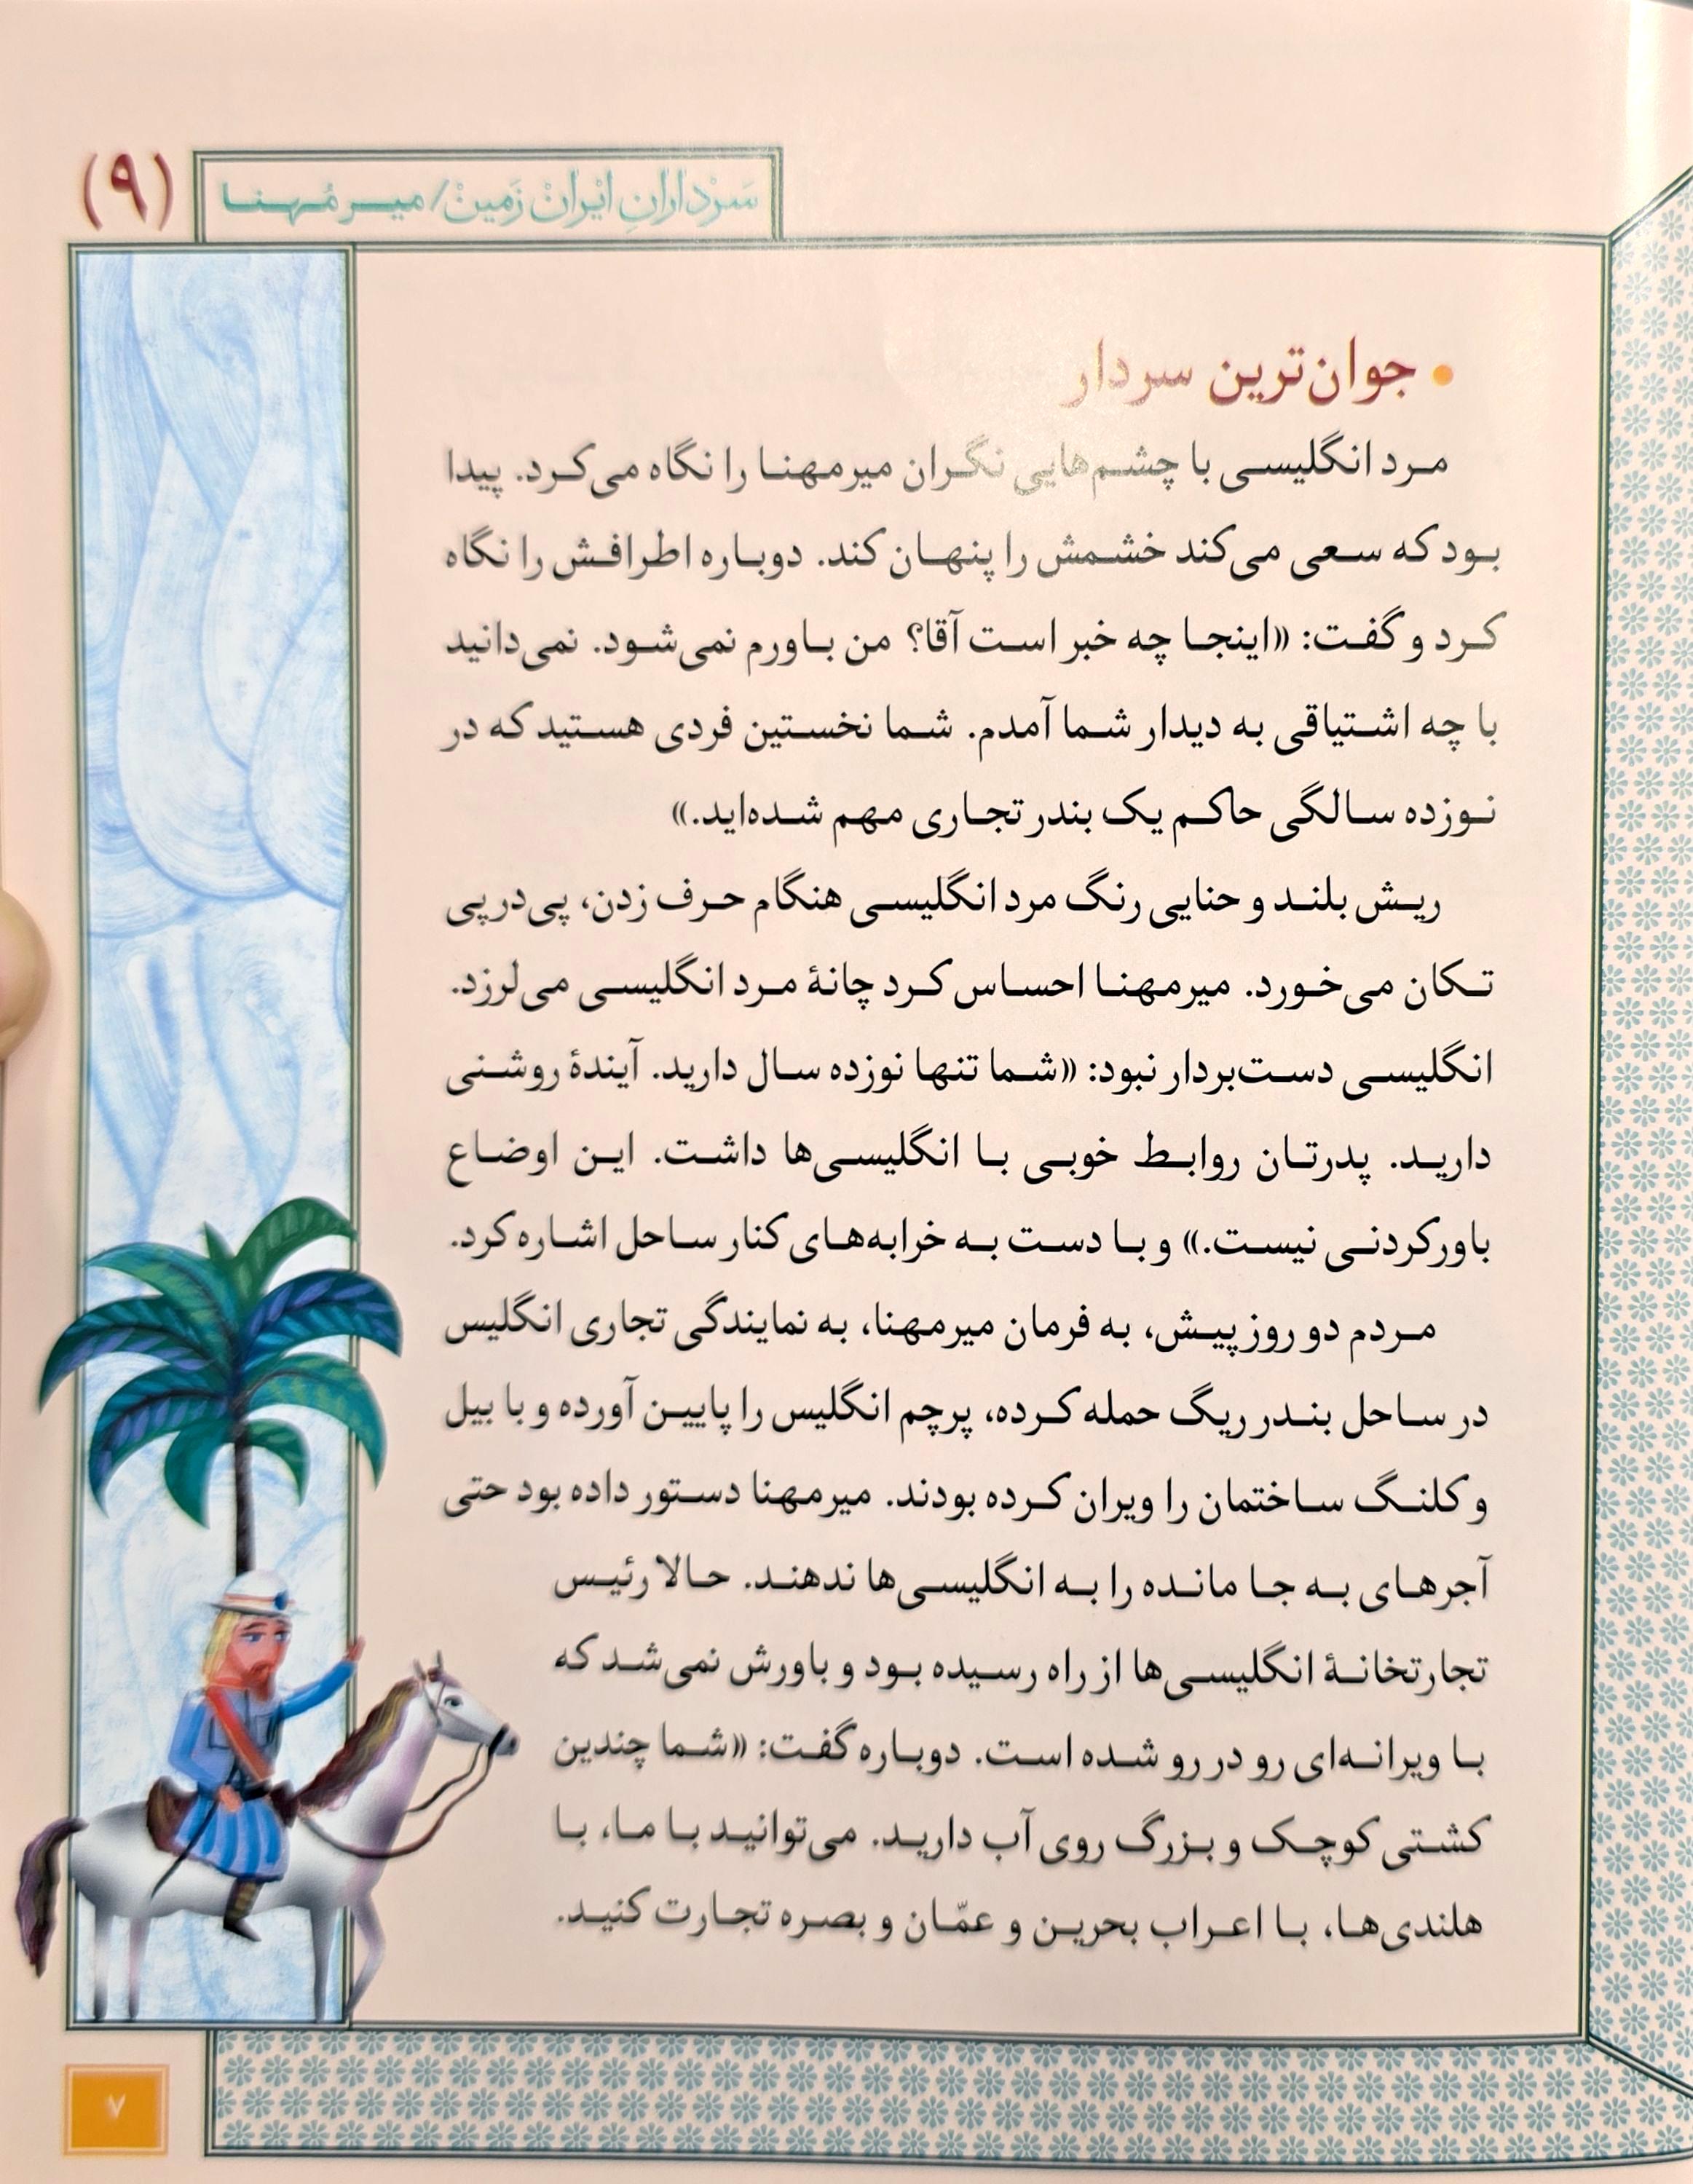 (۹)
سَرْدارانِ ایْرانْ زَمینْ/میـر مُهـنـا
• جوان‌ترین سردار
مرد انگلیسی با چشم‌هایی نگران میرمهنا را نگاه می‌کرد. پیدا
بود که سعی می‌کند خشمش را پنهان کند. دوباره اطرافش را نگاه
کرد و گفت: «اینجا چه خبر است آقا؟ من باورم نمی‌شود. نمی‌دانید
با چه اشتیاقی به دیدار شما آمدم. شما نخستین فردی هستید که در
نوزده سالگی حاکم یک بندر تجاری مهم شده‌اید.»
ریش بلند و حنایی رنگ مرد انگلیسی هنگام حرف زدن، پی‌درپی
تکان می‌خورد. میرمهنا احساس کرد چانۀ مرد انگلیسی می‌لرزد.
انگلیسی دست‌بردار نبود: «شما تنها نوزده سال دارید. آیندۀ روشنی
دارید. پدرتان روابط خوبی با انگلیسی‌ها داشت. این اوضاع
باورکردنی نیست.» و با دست به خرابه‌های کنار ساحل اشاره کرد.
مردم دو روز پیش، به فرمان میرمهنا، به نمایندگی تجاری انگلیس
در ساحل بندر ریگ حمله کرده، پرچم انگلیس را پایین آورده و با بیل
و کلنگ ساختمان را ویران کرده بودند. میرمهنا دستور داده بود حتی
آجرهای به جا مانده را به انگلیسی‌ها ندهند. حالا رئیس
تجارتخانۀ انگلیسی‌ها از راه رسیده بود و باورش نمی‌شد که
با ویرانه‌ای رو در رو شده است. دوباره گفت: «شما چندین
کشتی کوچک و بزرگ روی آب دارید. می‌توانید با ما، با
هلندی‌ها، با اعراب بحرین و عمّان و بصره تجارت کنید.
۷